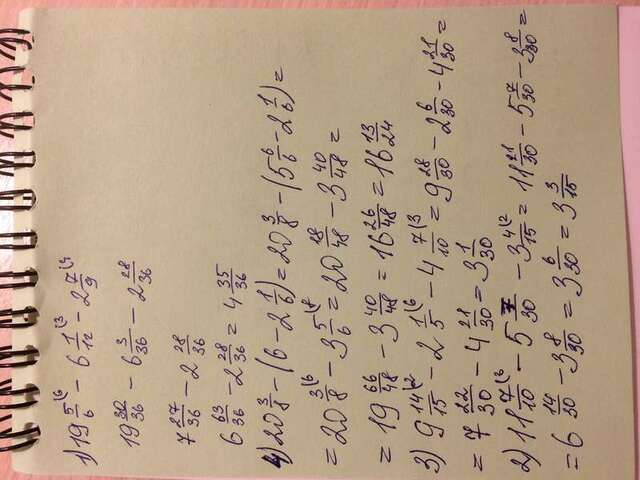 1) 19 5/6 (6 − 6 1/12 (3 − 2 7/9 (4
19 30/36 − 6 3/36 − 2 28/36
7 27/36 − 2 28/36
6 63/36 − 2 28/36 = 4 35/36
4) 20 3/8 − (6 − 2 1/6) = 20 3/8 − (5 6/6 − 2 1/6) =
= 20 3/8 (6 − 3 5/6 (8 = 20 18/48 − 3 40/48 =
= 19 66/48 − 3 40/48 = 16 26/48 = 16 13/24
3) 9 14/15 (2 − 2 1/5 (6 − 4 7/10 (3 = 9 28/30 − 2 6/30 − 4 21/30 =
= 7 22/30 − 4 21/30 = 3 1/30
2) 11 7/10 (3 − 5 7/30 − 3 4/15 (2 = 11 21/30 − 5 7/30 − 3 8/30 =
= 6 14/30 − 3 8/30 = 3 6/30 = 3 3/15